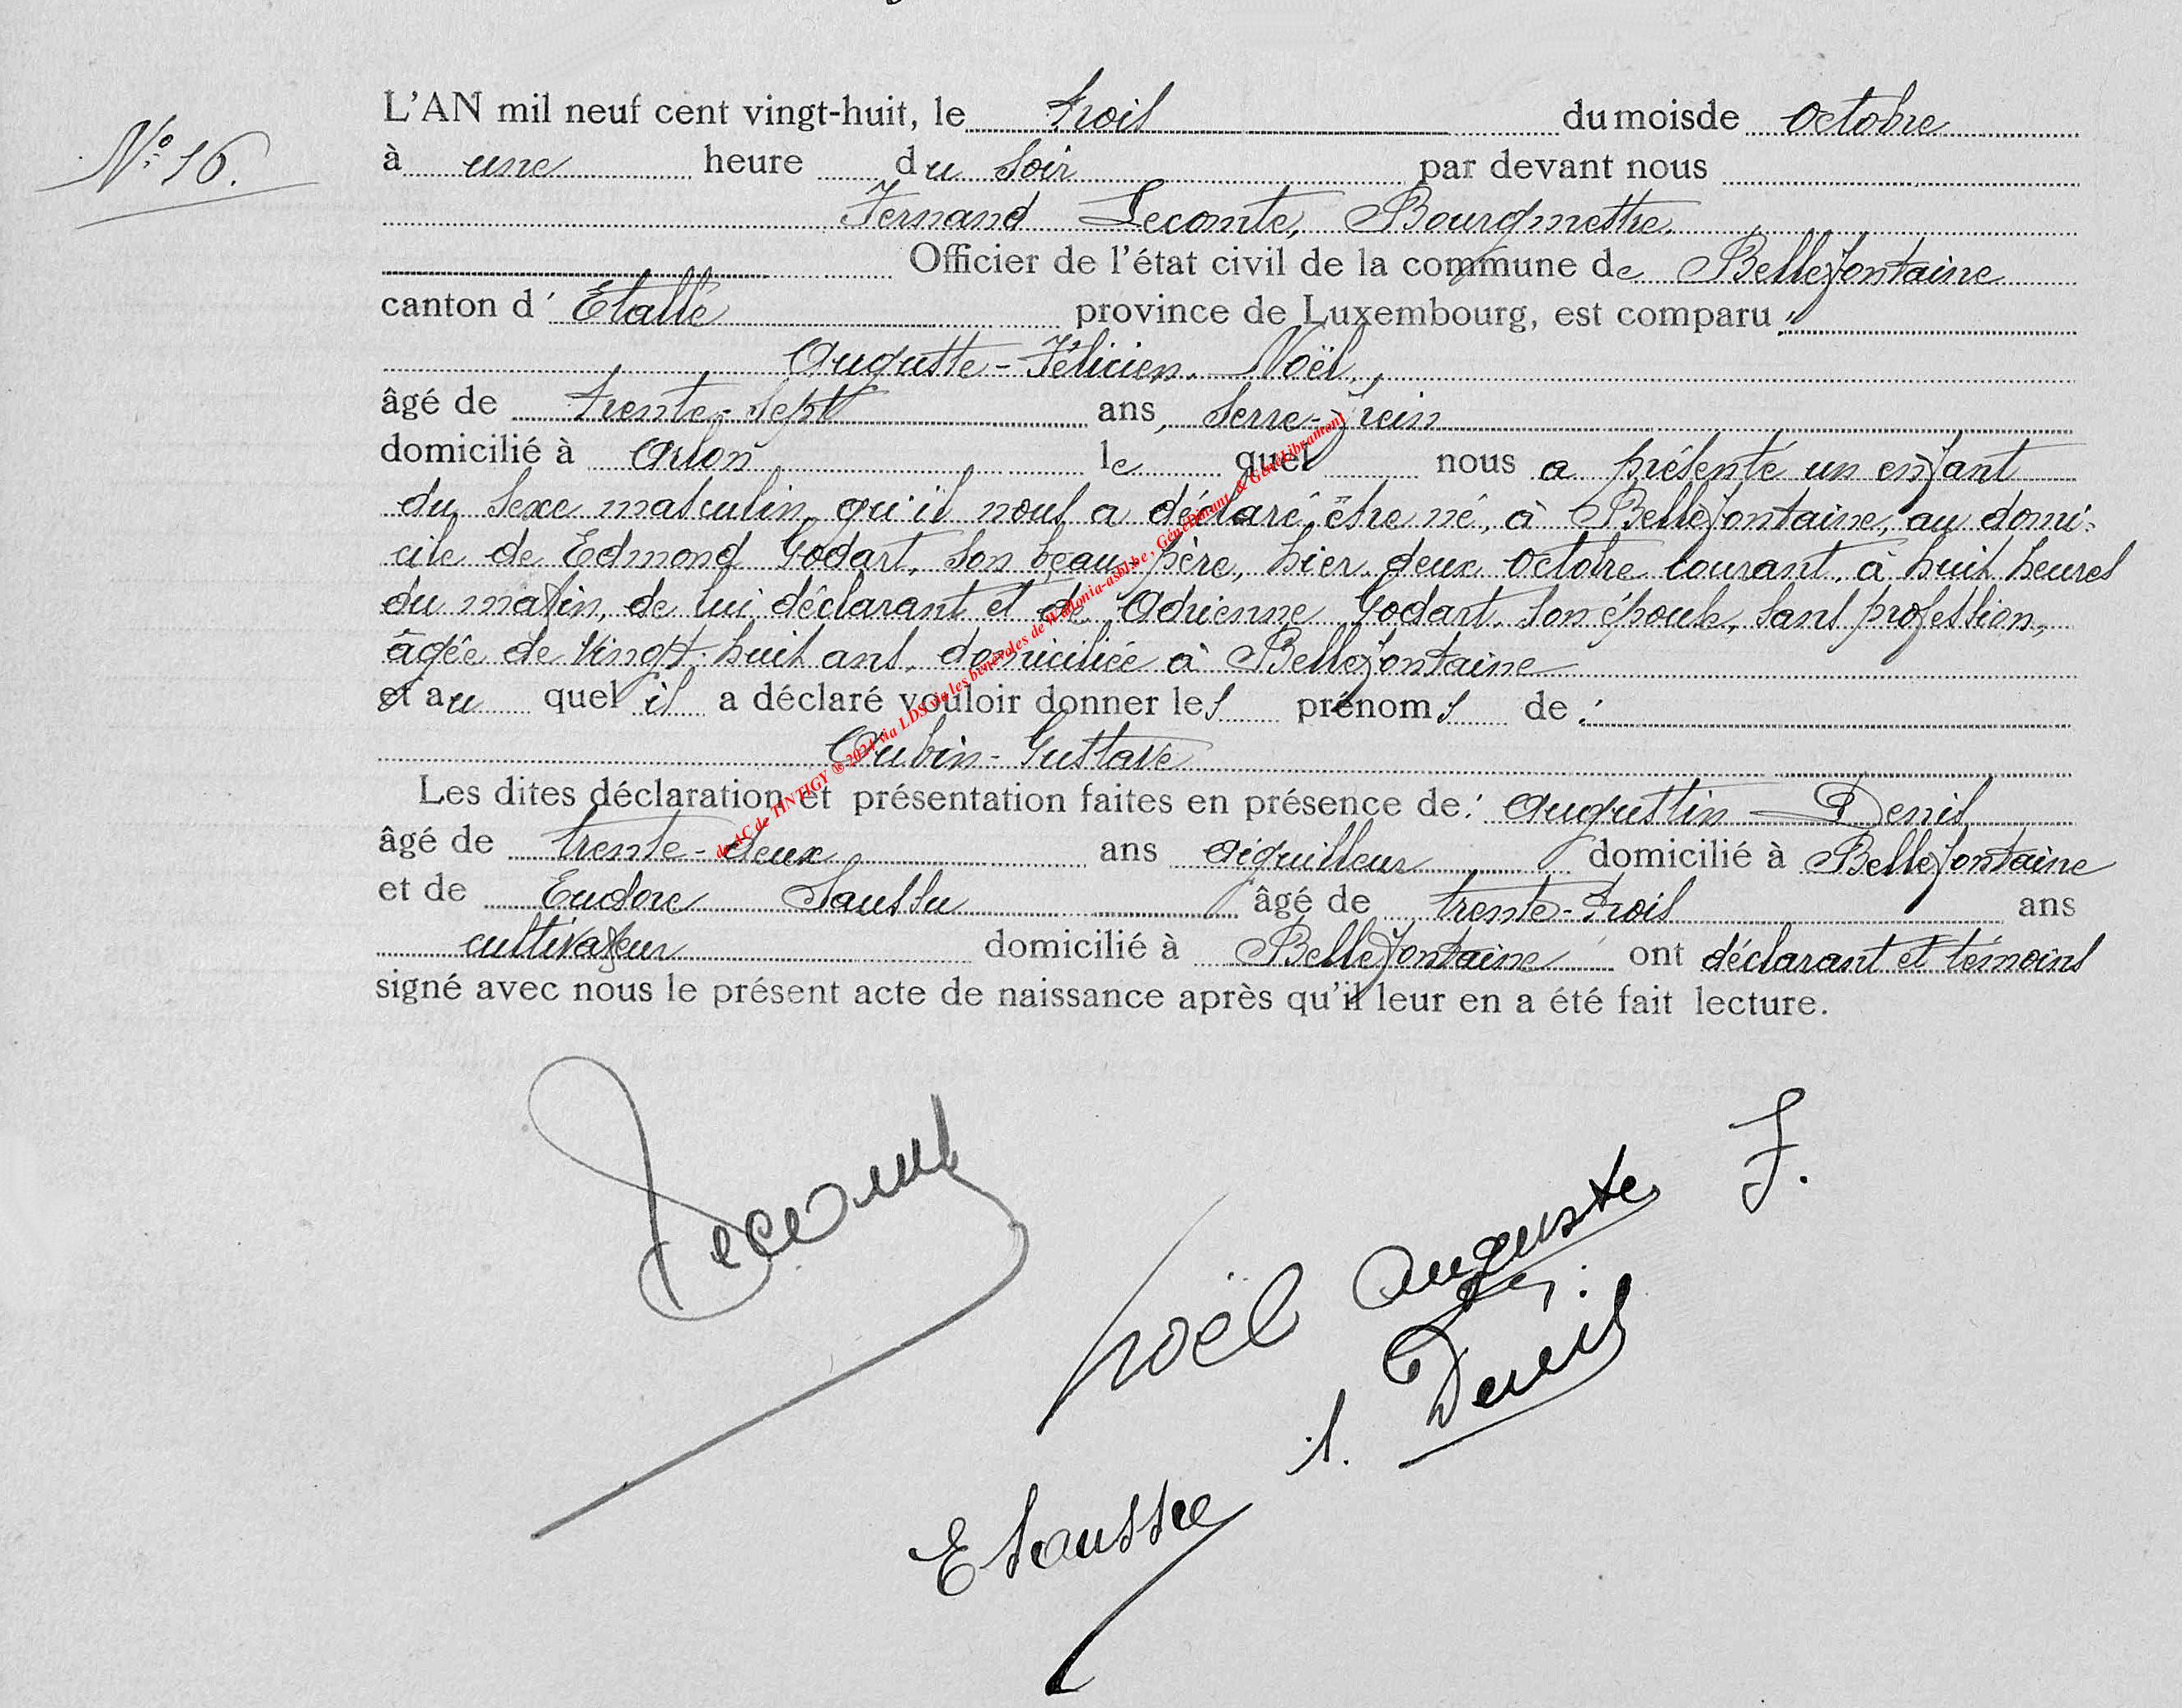 N° 16.
L'AN mil neuf cent vingt-huit, le trois du mois de octobre
à une heure du soir par devant nous
Fernand Leconte, Bourgmestre.
Officier de l'état civil de la commune de Bellefontaine
canton d' Etalle province de Luxembourg, est comparu :
Auguste-Félicien Noël,
âgé de trente-sept ans, serre-frein
domicilié à Arlon le quel nous a présenté un enfant
du sexe masculin, qu'il nous a déclaré être né, à Bellefontaine, au domi-
cile de Edmond Godart, son beau-père, hier deux octobre courant, à huit heures
du matin, de lui déclarant et de Adrienne Godart, son épouse, sans profession,
âgée de vingt-huit ans, domiciliée à Bellefontaine
et au quel il a déclaré vouloir donner les prénoms de :
Aubin-Gustave
Les dites déclaration et présentation faites en présence de : Augustin Denis
âgé de trente-deux ans aiguilleur domicilié à Bellefontaine
et de Eudore Saussu âgé de trente-trois ans
cultivateur domicilié à Bellefontaine ont déclarant et témoins
signé avec nous le présent acte de naissance après qu'il leur en a été fait lecture.
de AC de TINTIGY ® 2024 via LDS via les bénévoles de Wallonia-asbl.be, GénéDinant & GénéLibramont
Leconte
Noël Auguste F.
Denis
E Saussu